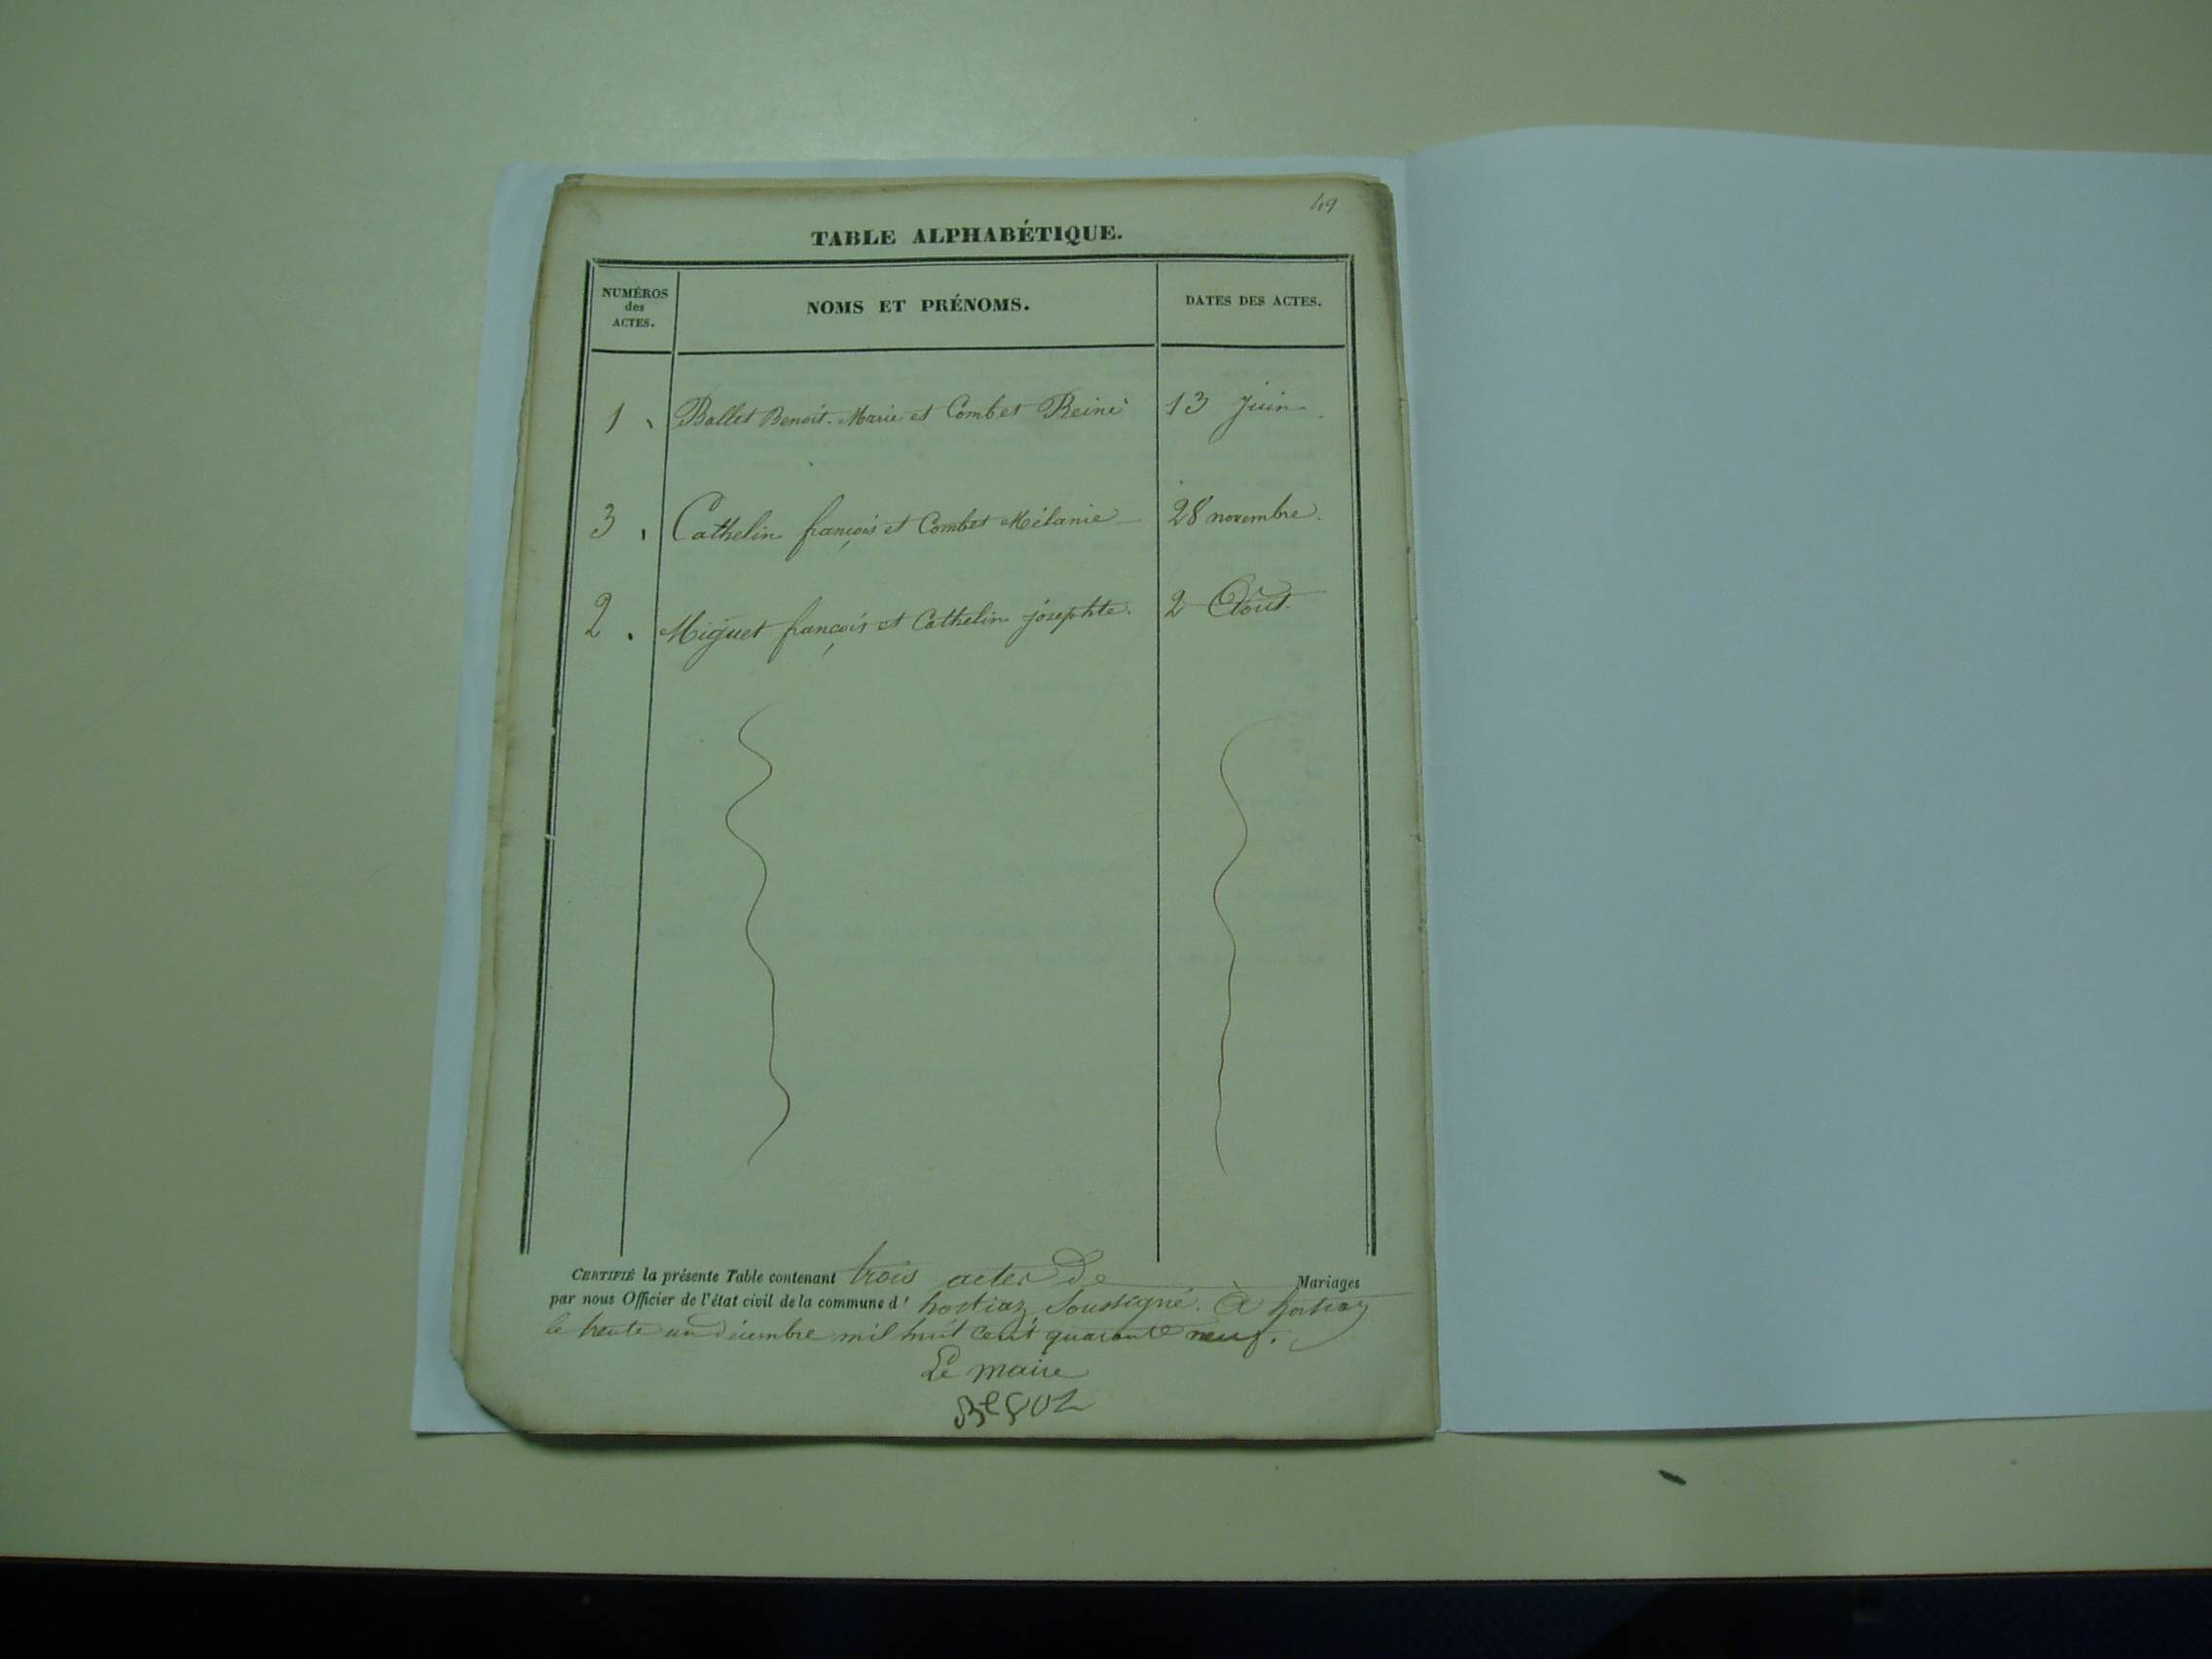 49
TABLE ALPHABÉTIQUE.
NUMÉROS
des
ACTES.
NOMS ET PRÉNOMS.
DATES DES ACTES.
1 Ballet Benoit-Marie et Combet Reine 13 Juin.
3 Cathelin françois et Combet Mélanie 28 novembre.
2. Miguet françois et Cathelin josephte. 2 Août.
CERTIFIÉ la présente Table contenant trois actes de Mariages
par nous Officier de l'état civil de la commune d' hostiaz soussigné. à hostiaz
le trente un décembre mil huit cent quarante neuf.
Le maire